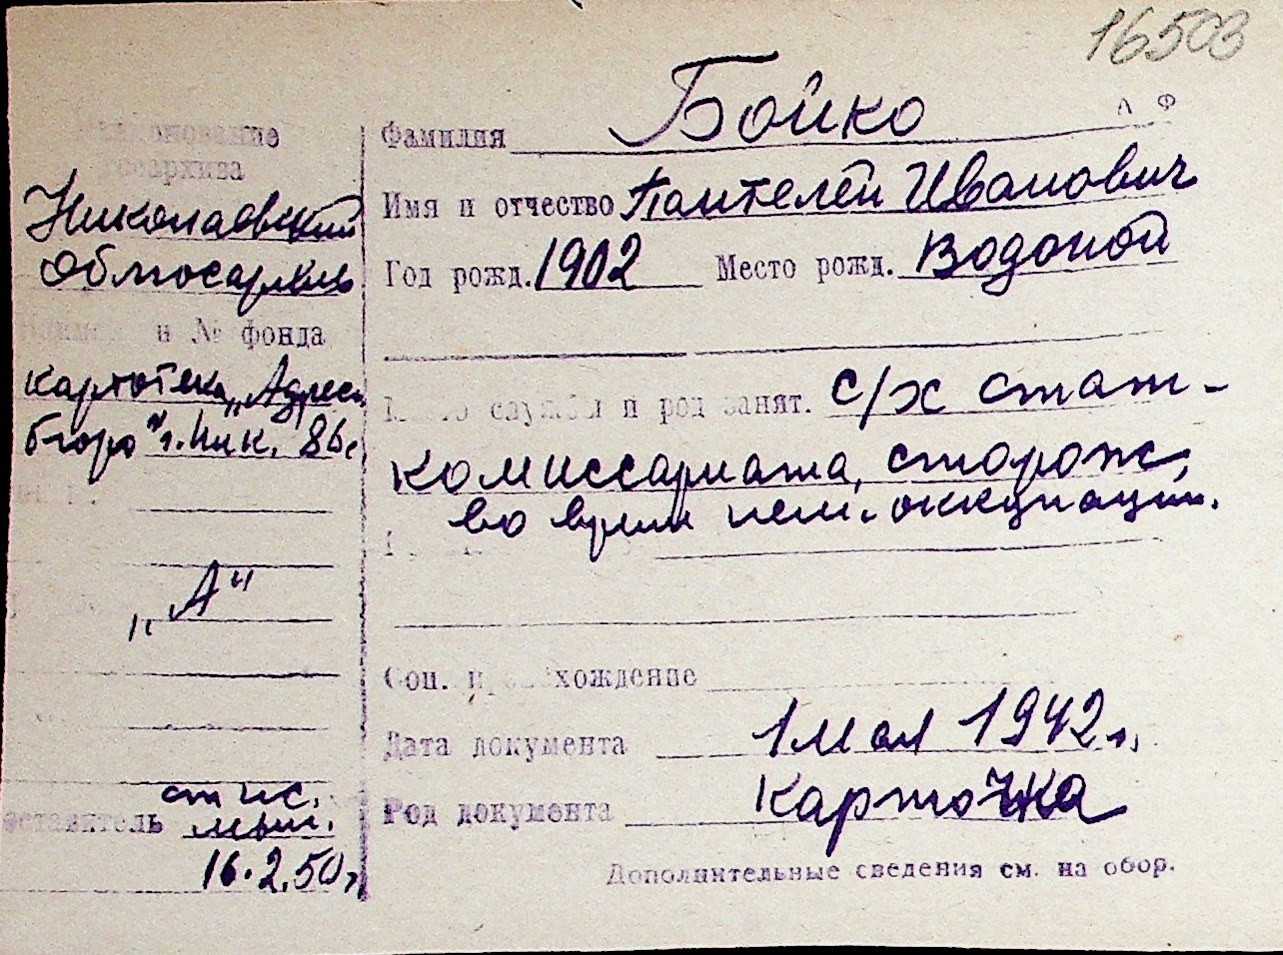 16503
Наименование
госархива
Николаевский
Облгосархив
и № фонда
картотека „Адресн.
бюро" г. Ник. 86с
„А"
Составитель
ст. ис.
16.2.50 г.
Фамилия Бойко
А Ф
Имя и отчество Пантелей Иванович
Год рожд. 1902 Место рожд. Водопой
Место службы и род занят. с/х стат-
комиссариата, сторож,
во время нем. оккупации.
Соц. происхождение
Дата документа 1 мая 1942 г.
Род документа карточка
Дополнительные сведения см. на обор.